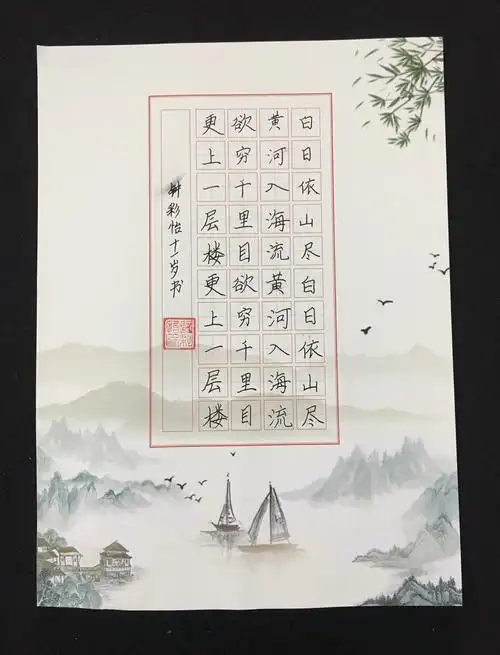 白日依山尽白日依山尽
黄河入海流黄河入海流
欲穷千里目欲穷千里目
更上一层楼更上一层楼
钟彩怡十一岁书